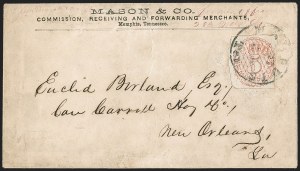 MASON & CO.
COMMISSION, RECEIVING AND FORWARDING MERCHANTS,
Memphis, Tennessee.
Euclid Borland Esq.
Care Carroll Hoy & Co.
New Orleans,
La